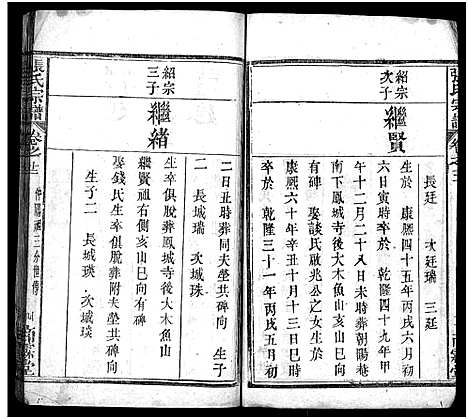 張氏宗譜 卷之三
長廷 次廷瑞 三廷
紹宗次子
繼賢
生於 康熙四十五年丙戌六月初
六日寅時卒於 乾隆四十九年甲
午十二月二十八日未時葬朝陽菴
南下鳳城寺後大木魚山亥山巳向
有碑 娶談氏啟兆公之女生於
康熙六十年辛丑十月十三日
卒於 乾隆三十一年丙戌五月初
二日丑時葬同夫塋共碑向 生子
二 長城瑞 次城珠
紹宗三子
繼緒
生卒俱脫葬鳳城寺後大木魚山
繼賢祖右側亥山巳向有碑
娶錢氏生卒俱脫葬附夫塋共碑向
生子二 長城瑛 次城琰
張氏宗譜 卷之
三分世傳
堂